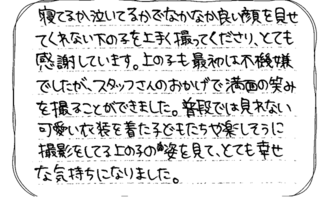 寝てるか泣いてるかでなかなか良い顔を見せ
てくれない下の子を上手く撮ってくださり、とても
感謝しています。上の子も最初は不機嫌
でしたが、スタッフさんのおかげで満面の笑み
を撮ることができました。普段では見れない
可愛い衣装を着た子どもたちや楽しそうに
撮影をしてる上の子の姿を見て、とても幸せ
な気持ちになりました。